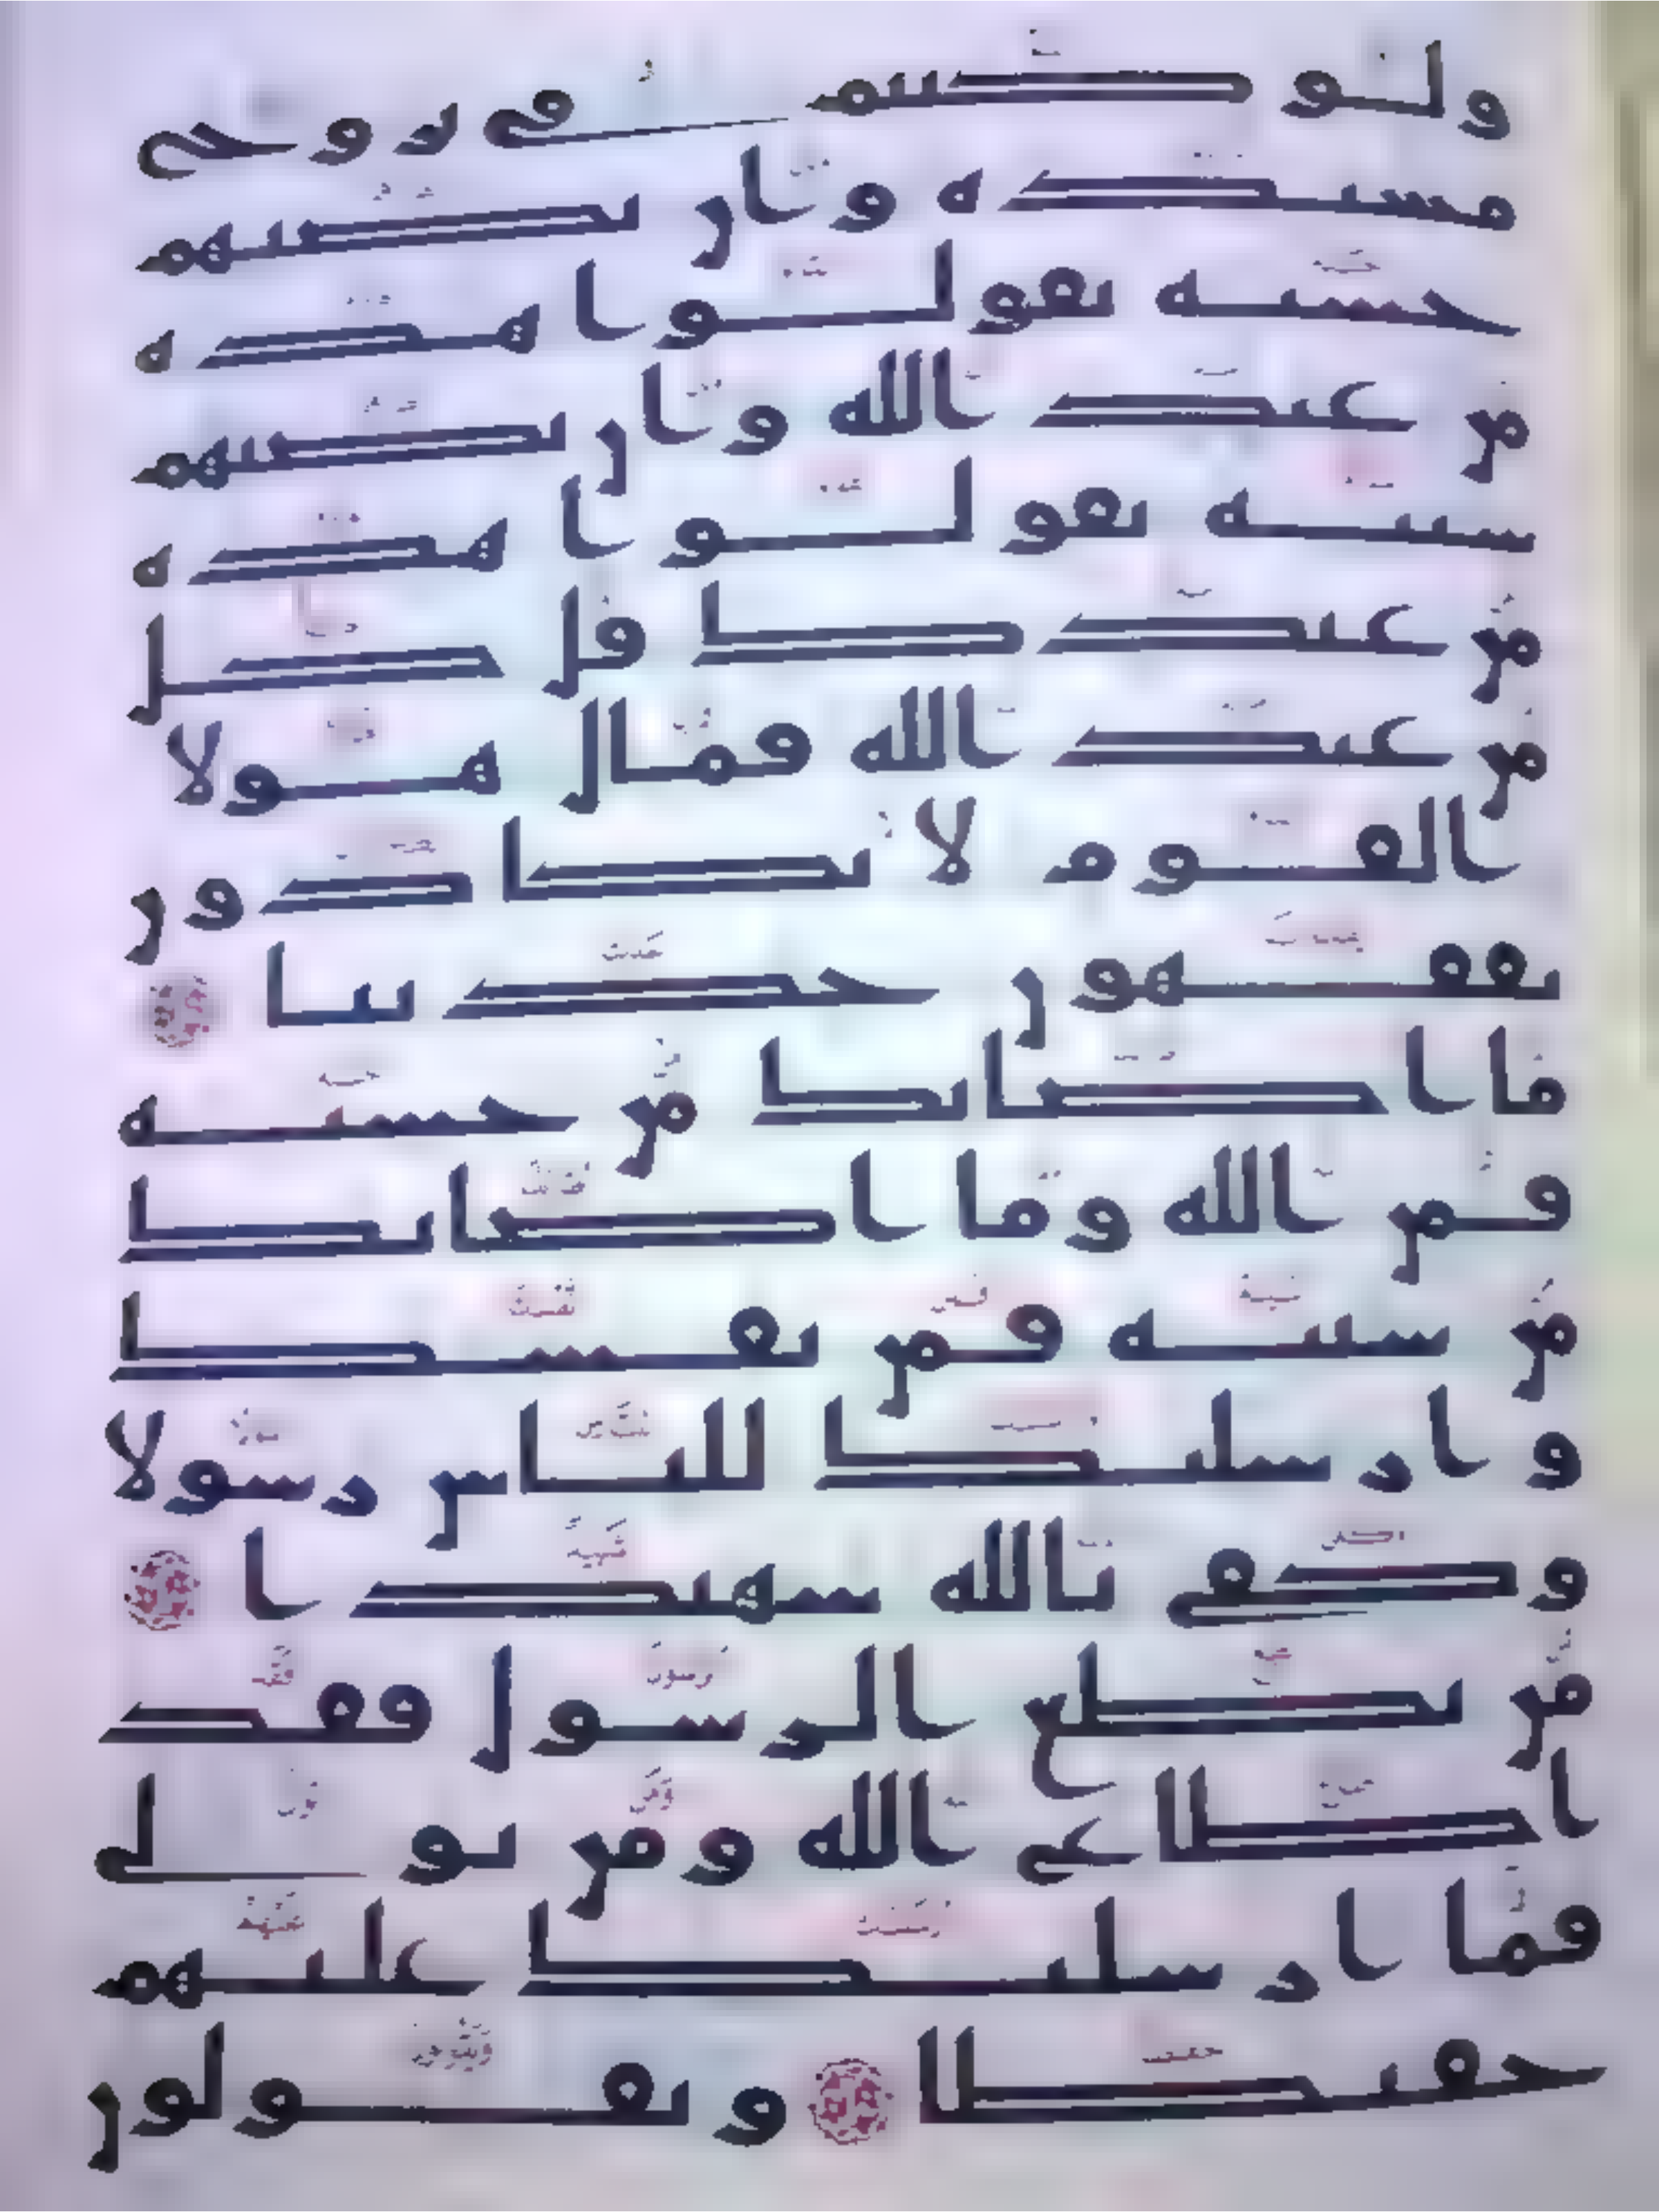 ولو كنتم في بروج
مشيدة وان تصبهم
حسنة يقولوا هذه
من عند الله وان تصبهم
سيئة يقولوا هذه
من عندك قل كل
من عند الله فمال هولا
القوم لا يكادون
يفقهون حديثا
ما اصابك من حسنة
فمن الله وما اصابك
من سيئة فمن نفسك
وارسلنك للناس رسولا
وكفى بالله شهيدا
من يطع الرسول فقد
اطاع الله ومن تولى
فما ارسلنك عليهم
حفيظا ويقولون